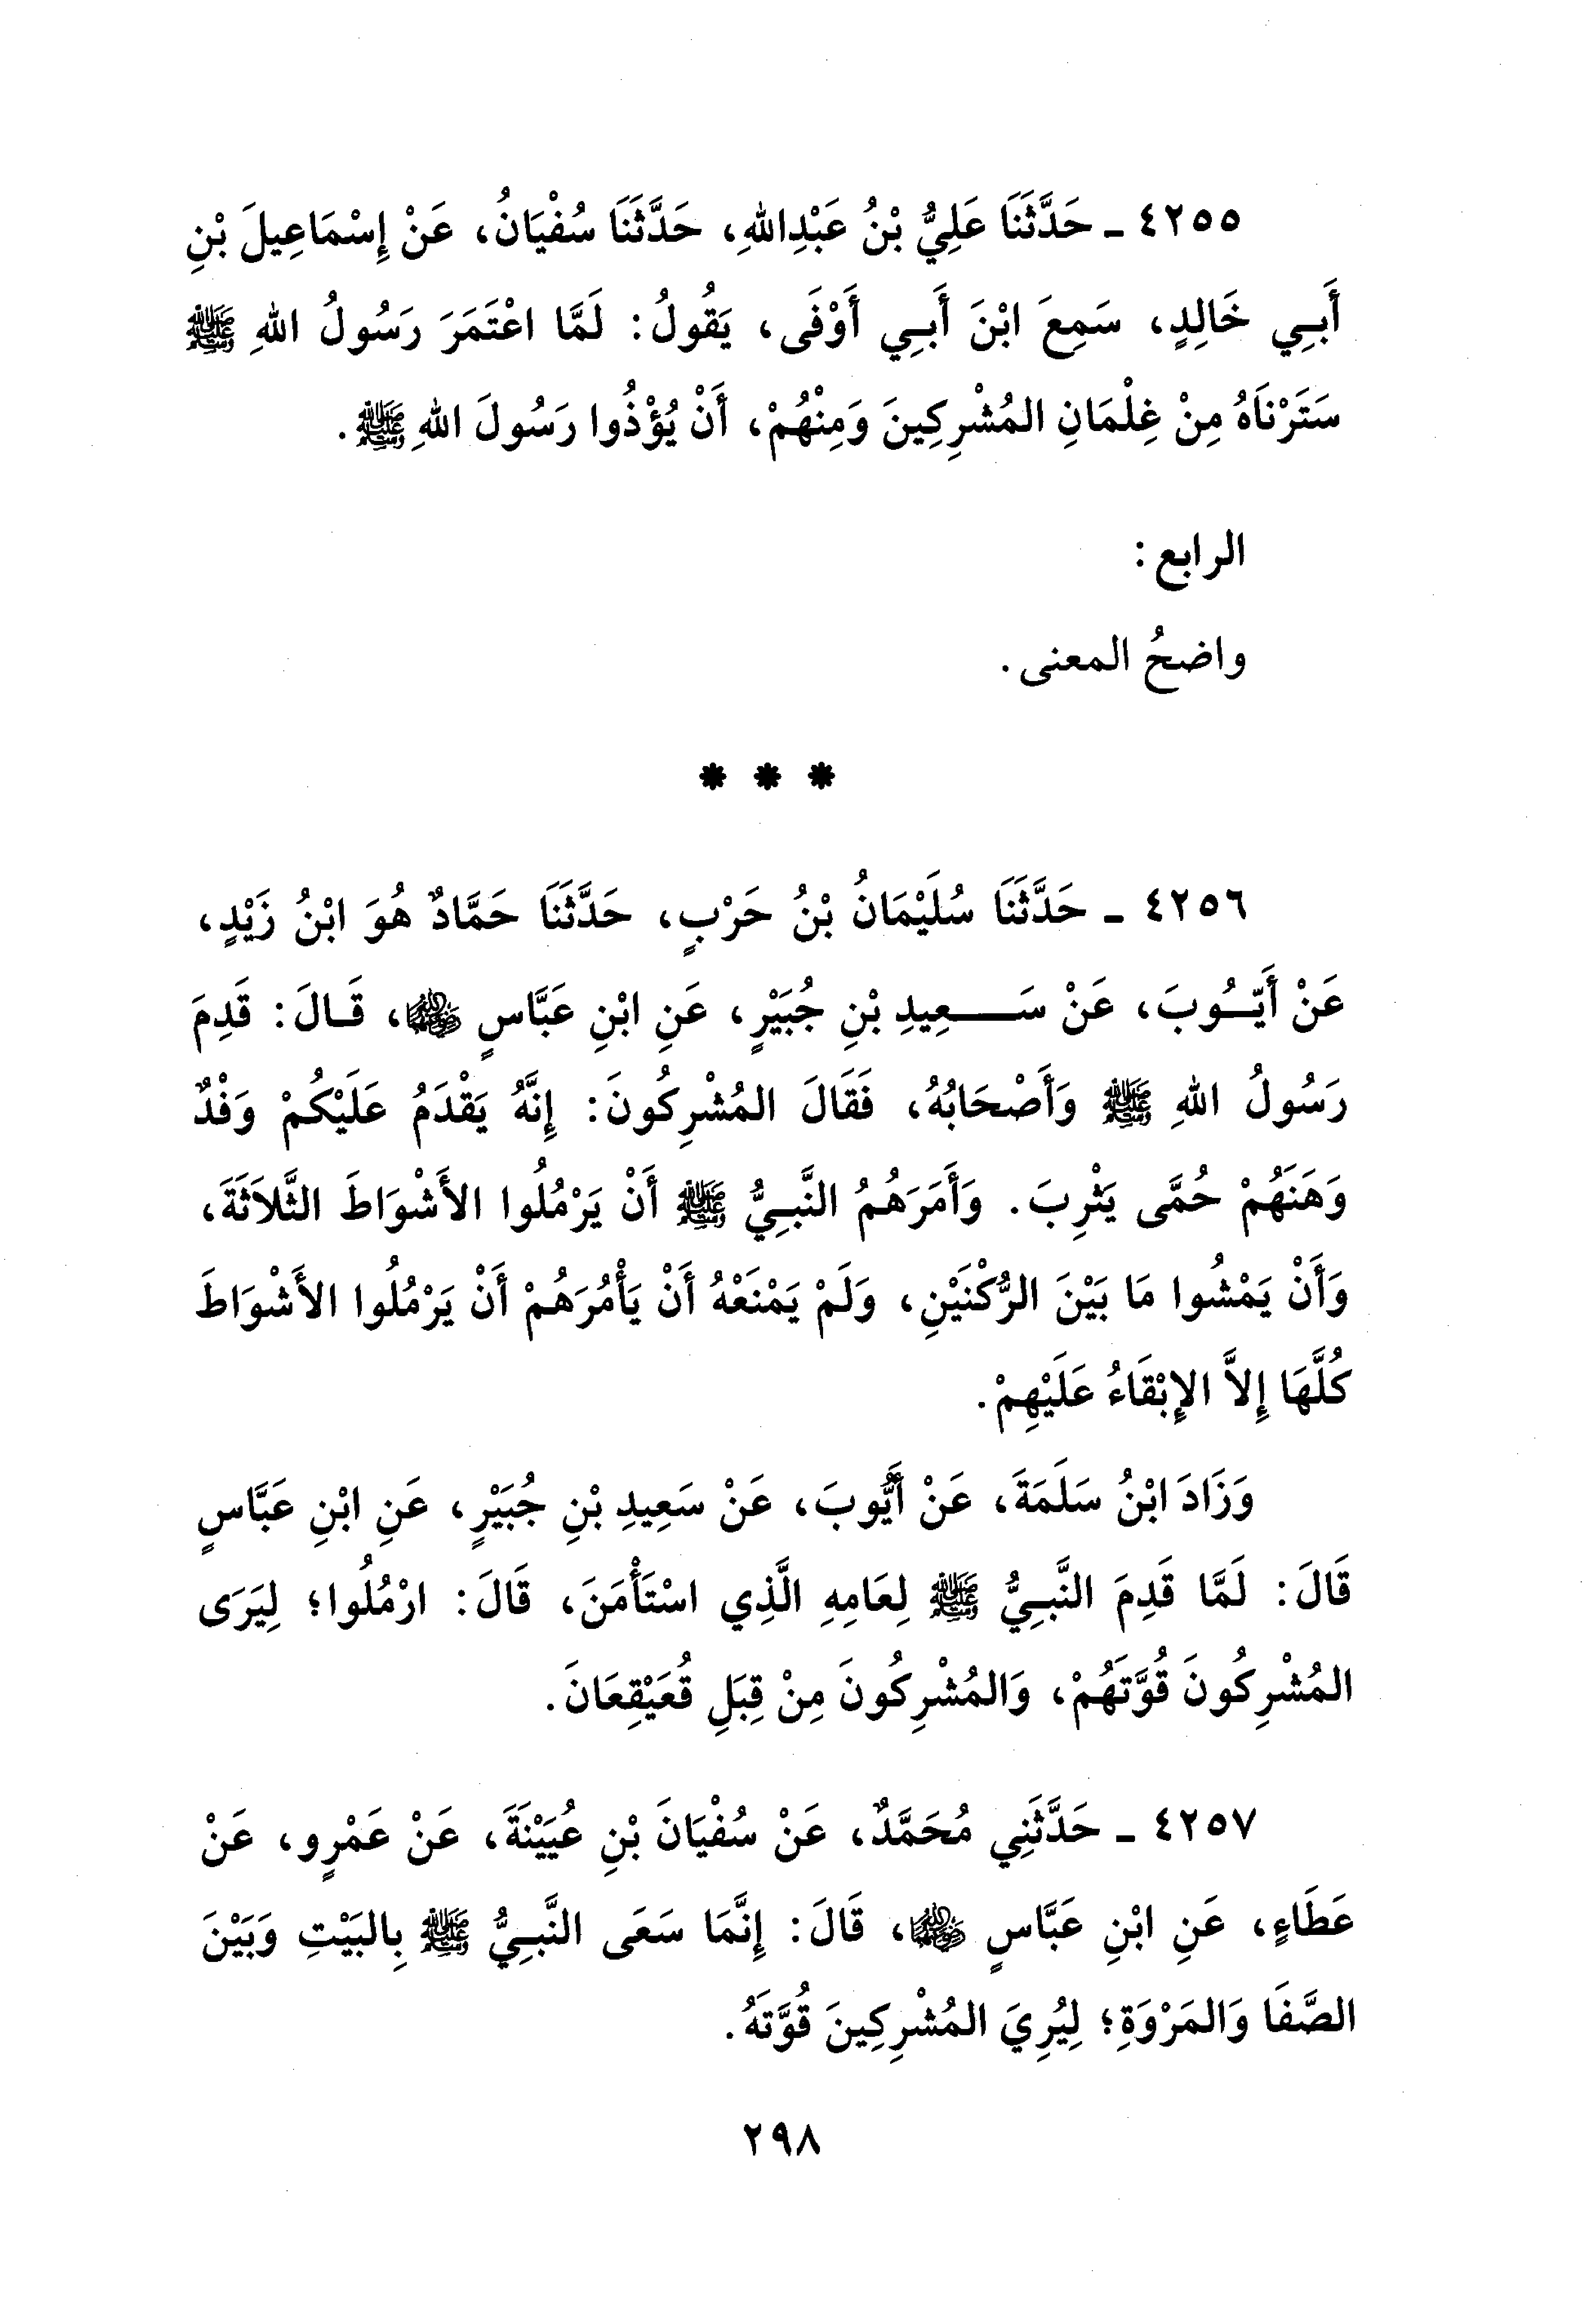 ٤٢٥٥ ـ حَدَّثَنَا عَلِيُّ بْنُ عَبْدِاللهِ، حَدَّثَنَا سُفْيَانُ، عَنْ إِسْمَاعِيلَ بْنِ
أَبِي خَالِدٍ، سَمِعَ ابْنَ أَبِي أَوْفَى، يَقُولُ: لَمَّا اعْتَمَرَ رَسُولُ اللهِ ﷺ
سَتَرْنَاهُ مِنْ غِلْمَانِ المُشْرِكِينَ وَمِنْهُمْ، أَنْ يُؤْذُوا رَسُولَ اللهِ ﷺ.
الرابع:
واضحُ المعنى.
* * *
٤٢٥٦ ـ حَدَّثَنَا سُلَيْمَانُ بْنُ حَرْبٍ، حَدَّثَنَا حَمَّادٌ هُوَ ابْنُ زَيْدٍ،
عَنْ أَيّـُوبَ، عَنْ سَـــعِيدِ بْنِ جُبَيْرٍ، عَنِ ابْنِ عَبَّاسٍ ﵄، قَـالَ: قَدِمَ
رَسُولُ اللهِ ﷺ وَأَصْحَابُهُ، فَقَالَ المُشْرِكُونَ: إِنَّهُ يَقْدَمُ عَلَيْكُمْ وَفْدٌ
وَهَنَهُمْ حُمَّى يَثْرِبَ. وَأَمَرَهُمُ النَّبِيُّ ﷺ أَنْ يَرْمُلُوا الأَشْوَاطَ الثَّلاَثَةَ،
وَأَنْ يَمْشُوا مَا بَيْنَ الرُّكْنَيْنِ، وَلَمْ يَمْنَعْهُ أَنْ يَأْمُرَهُمْ أَنْ يَرْمُلُوا الأَشْوَاطَ
كُلَّهَا إِلاَّ الإِبْقَاءُ عَلَيْهِمْ.
وَزَادَ ابْنُ سَلَمَةَ، عَنْ أَيُّوبَ، عَنْ سَعِيدِ بْنِ جُبَيْرٍ، عَنِ ابْنِ عَبَّاسٍ
قَالَ: لَمَّا قَدِمَ النَّبِيُّ ﷺ لِعَامِهِ الَّذِي اسْتَأْمَنَ، قَالَ: ارْمُلُوا؛ لِيَرَى
المُشْرِكُونَ قُوَّتَهُمْ، وَالمُشْرِكُونَ مِنْ قِبَلِ قُعَيْقِعَانَ.
٤٢٥٧ ـ حَدَّثَنِي مُحَمَّدٌ، عَنْ سُفْيَانَ بْنِ عُيَيْنَةَ، عَنْ عَمْرٍو، عَنْ
عَطَاءٍ، عَنِ ابْنِ عَبَّاسٍ ﵄، قَالَ: إِنَّمَا سَعَى النَّبِيُّ ﷺ بِالبَيْتِ وَبَيْنَ
الصَّفَا وَالمَرْوَةِ؛ لِيُرِيَ المُشْرِكِينَ قُوَّتَهُ.
٢٩٨